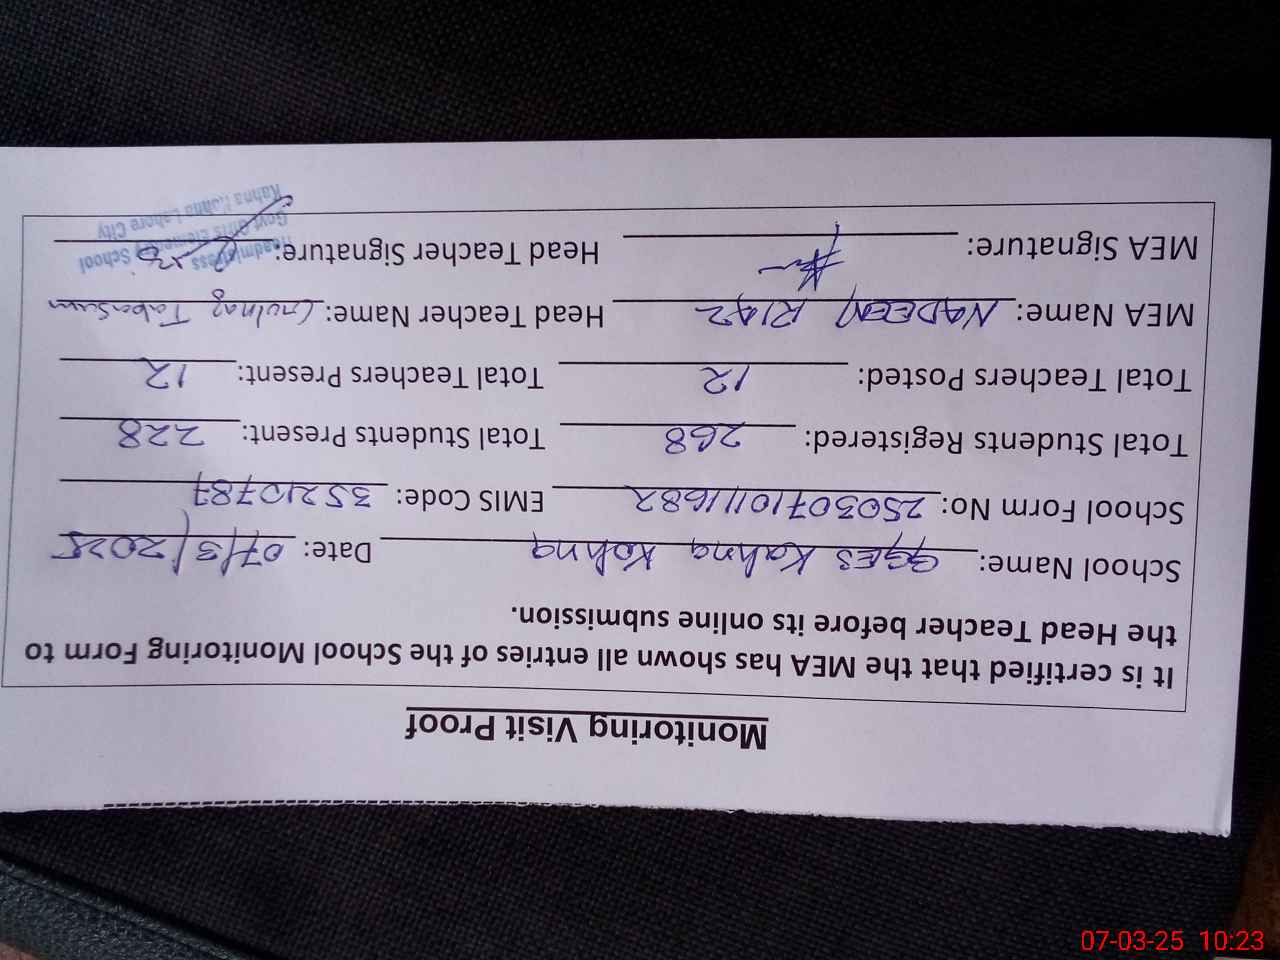 Monitoring Visit Proof
It is certified that the MEA has shown all entries of the School Monitoring Form to
the Head Teacher before its online submission.
School Name: GGES Kahna Kohna Date: 07/3/2025
School Form No: 25030710111682 EMIS Code: 35210787
Total Students Registered: 268 Total Students Present: 228
Total Teachers Posted: 12 Total Teachers Present: 12
MEA Name: NADEEM RIAZ Head Teacher Name: Gulnaz Tabassum
MEA Signature: Head Teacher Signature:
Headmistress
Govt Girls Elementary School
Kahna Kohna Lahore City
07-03-25 10:23